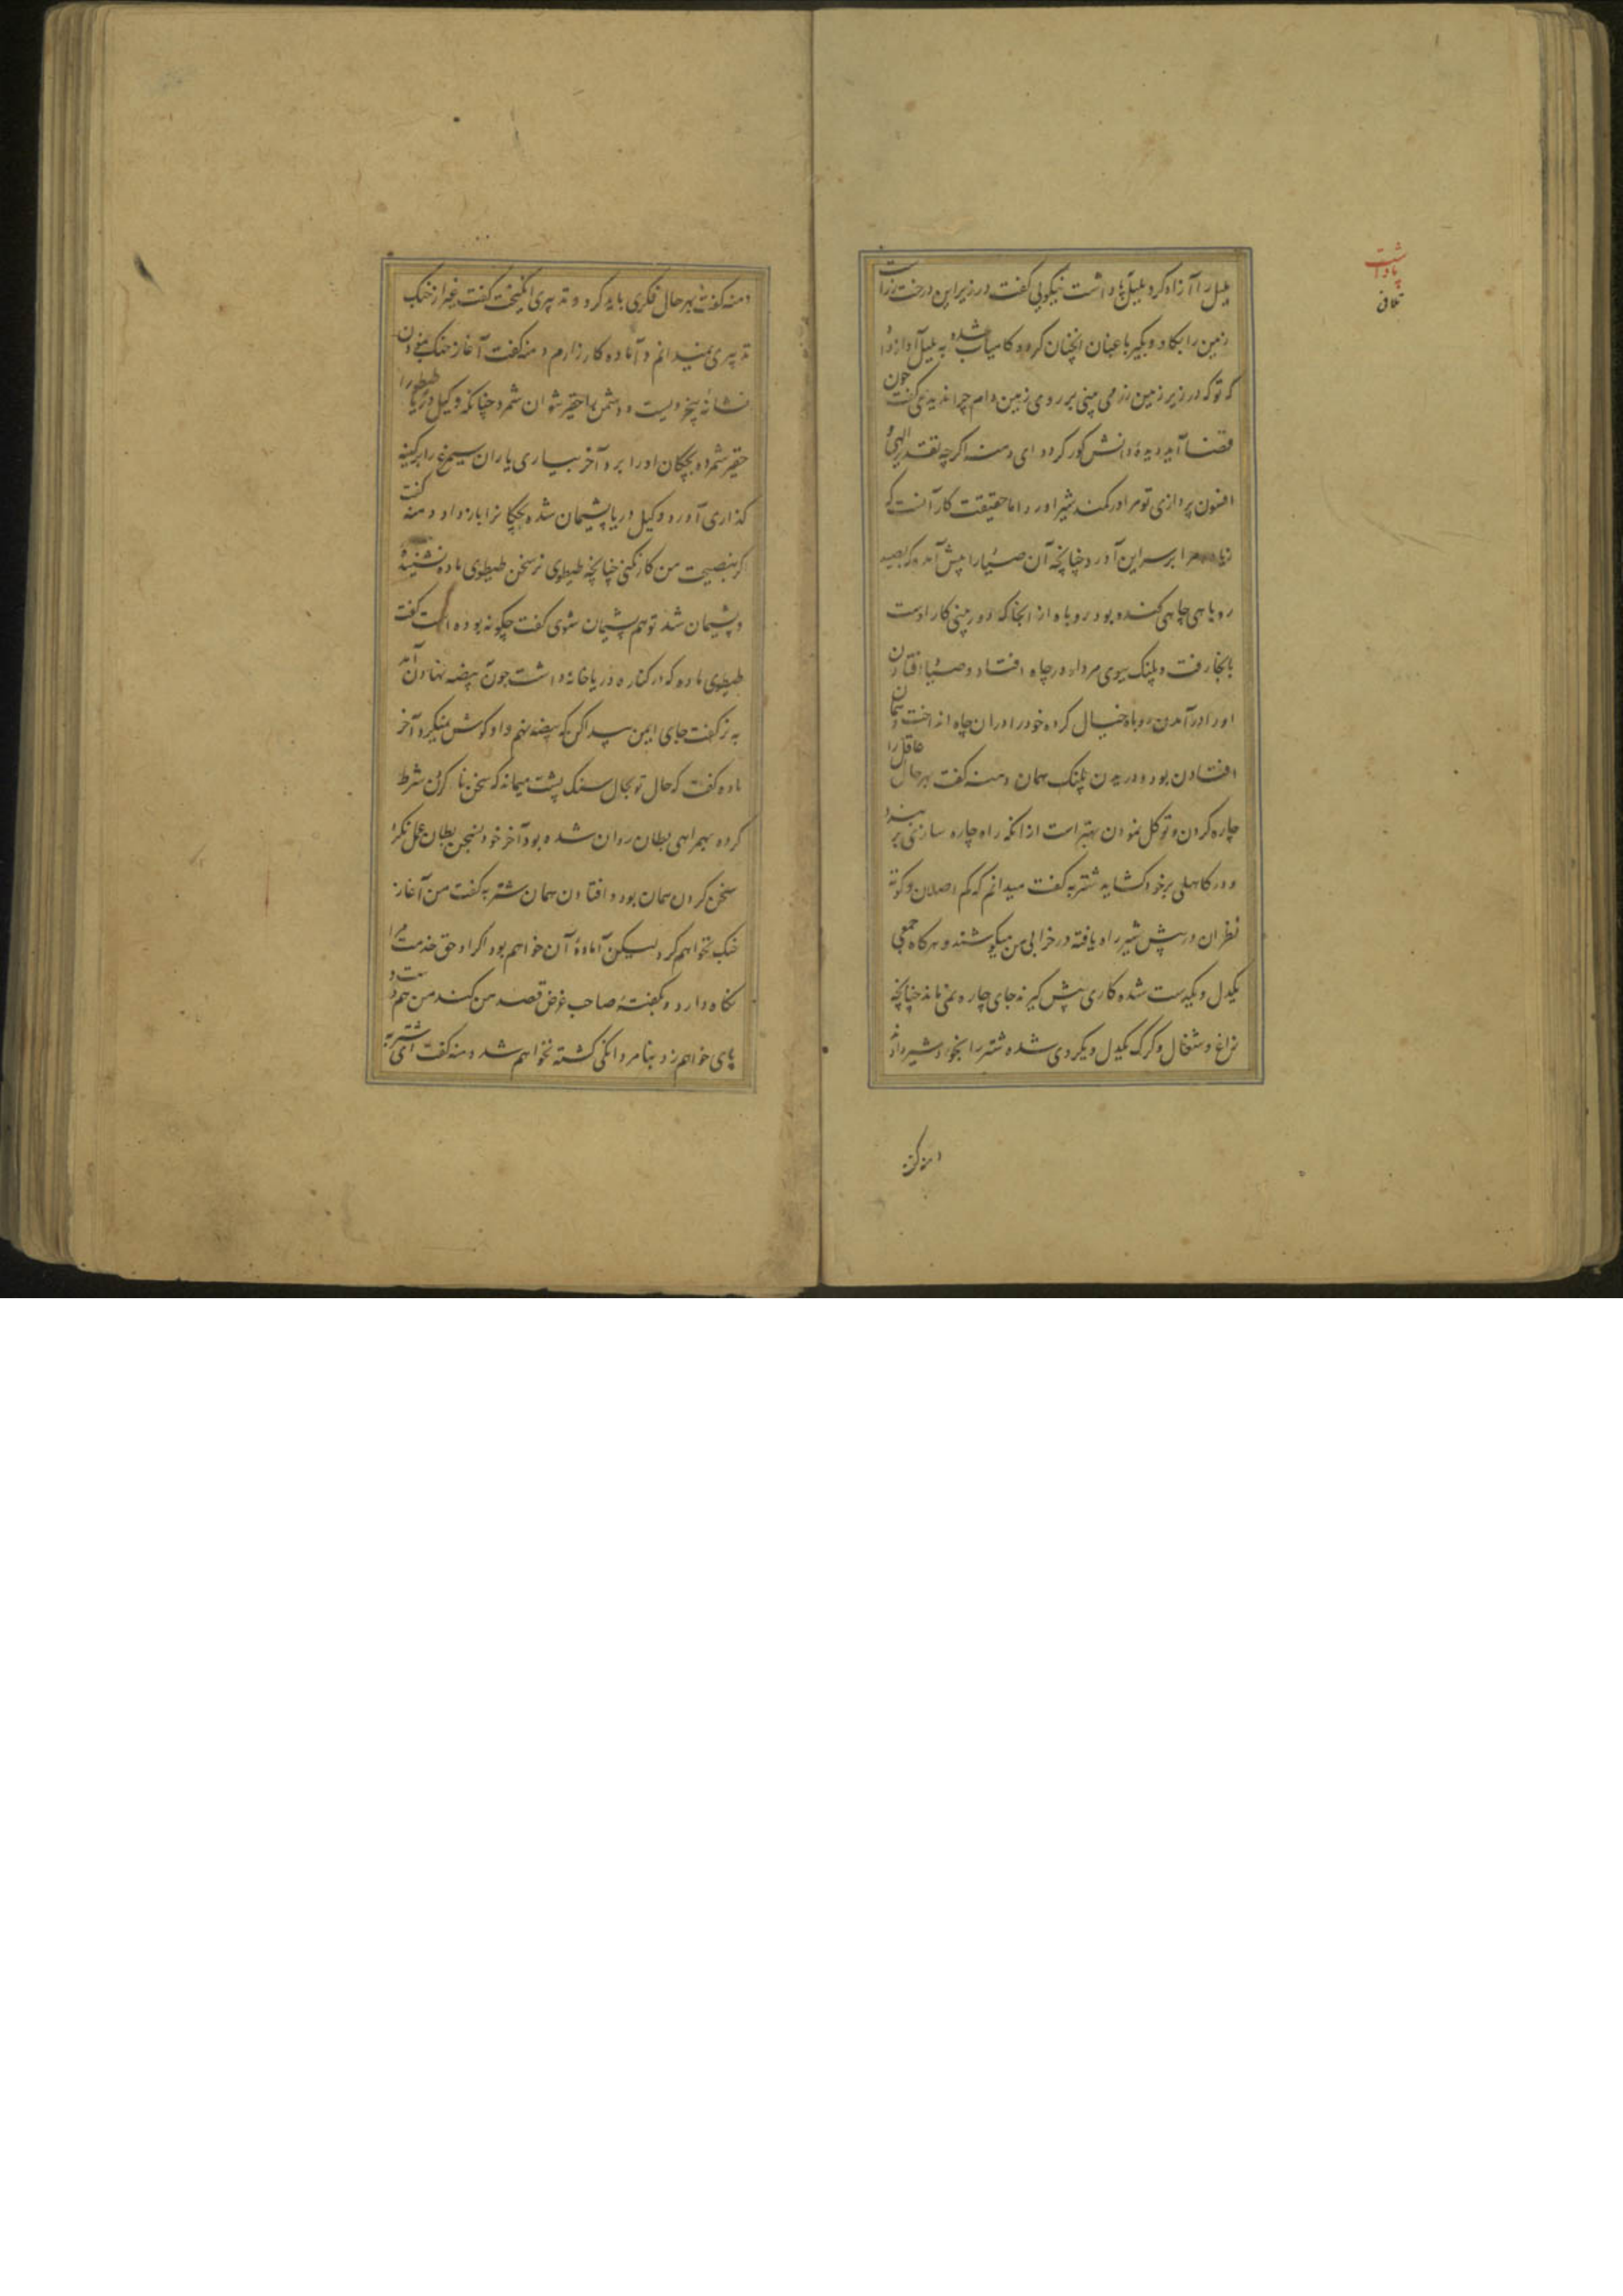 بلبل را آزاد کرد بلبل پاداشت نیکویی گفت در زیر این درخت زر است
زمین را بکاو و بگیر باغبان انچنان کرد و کامیاب شده به بلبل آواز داد
که تو که در زیر زمین زر می بینی بر روی زمین دام چرا ندیدی گفت چون
قضا آید دیدهٔ دانش کور کردد ای دمنه اکرچه تقدیر الهی و
افسون پردازی تو مرا در کمند شیر اورد اما حقیقت کار آنست که
مرا بر سر این آورد چنانچه آن صیاد را پیش آمد که بصید
روباهی چاهی کنده بود روباه از انجا که دور بینی کار اوست
بانجا رفت و پلنک ببوی مردار در چاه افتاد و صیاد افتادن
اورا در آمدن روباه خیال کرده خود را در ان چاه انداخت همان
افتادن بود و دریدن پلنک همان دمنه گفت بهر حال عاقل را
چاره کردن و توکل نمودن بهتر است از انکه راه چاره سازی بر بندد
و در کاهلی بر خود کشاید شتربه گفت میدانم که کم اصلان و کوته
نظران در پیش شیر راه یافته در خرابی من میکوشند و هرکاه جمعی
یکدل و یکدست شده کاری پیش کیرند جای چاره نمی ماند چنانچه
زاغ و شغال و کرک یکدل و یکروی شده شتر را بخورد شیر دادند
پاداشت
تلافی
دمنه گفت
دمنه گفت بهر حال فکری باید کرد و تدبیری انکیخت گفت غیر از جنک
تدبیری نمیدانم و آماده کارزارم دمنه گفت آغاز جنک نمودن
نشانهٔ بیخردیست و دشمن را حقیر نتوان شمرد چنانکه وکیل دریا طیطو را
حقیر شمرده بچکان اورا برد آخر بیاری یاران سیمرغ را بر کینه
گذاری آورد و وکیل دریا پشیمان شده بچکانرا باز داد دمنه گفت
کر بنصیحت من کار نکنی چنانچه طیطوی نر سخن طیطوی ماده نشنیده
و پشیمان شد تو هم پشیمان شوی گفت چگونه بوده است گفت
طیطوی ماده که در کناره دریا خانه داشت چون بیضه نهادن آمد
به نر گفت جای ایمن پیدا کن که بیضه نهم و او کوش نمیکرد آخر
ماده گفت که حال تو بحال سنک پشت میماند که سخن نا کردن شرط
کرده بهمراهی بطان روان شده بود آخر خود بسخن بطان عمل نکرد
سخن کردن همان بود و افتادن همان شتربه گفت من آغاز
جنک نخواهم کرد لیکن آمادهٔ آن خواهم بود اکر او حق خدمت مرا
نکاه دارد و بکفتهٔ صاحب غرض قصد من کند من هم دست و
پای خواهم زد و بنامردانکی کشته نخواهم شد دمنه گفت ای شتربه